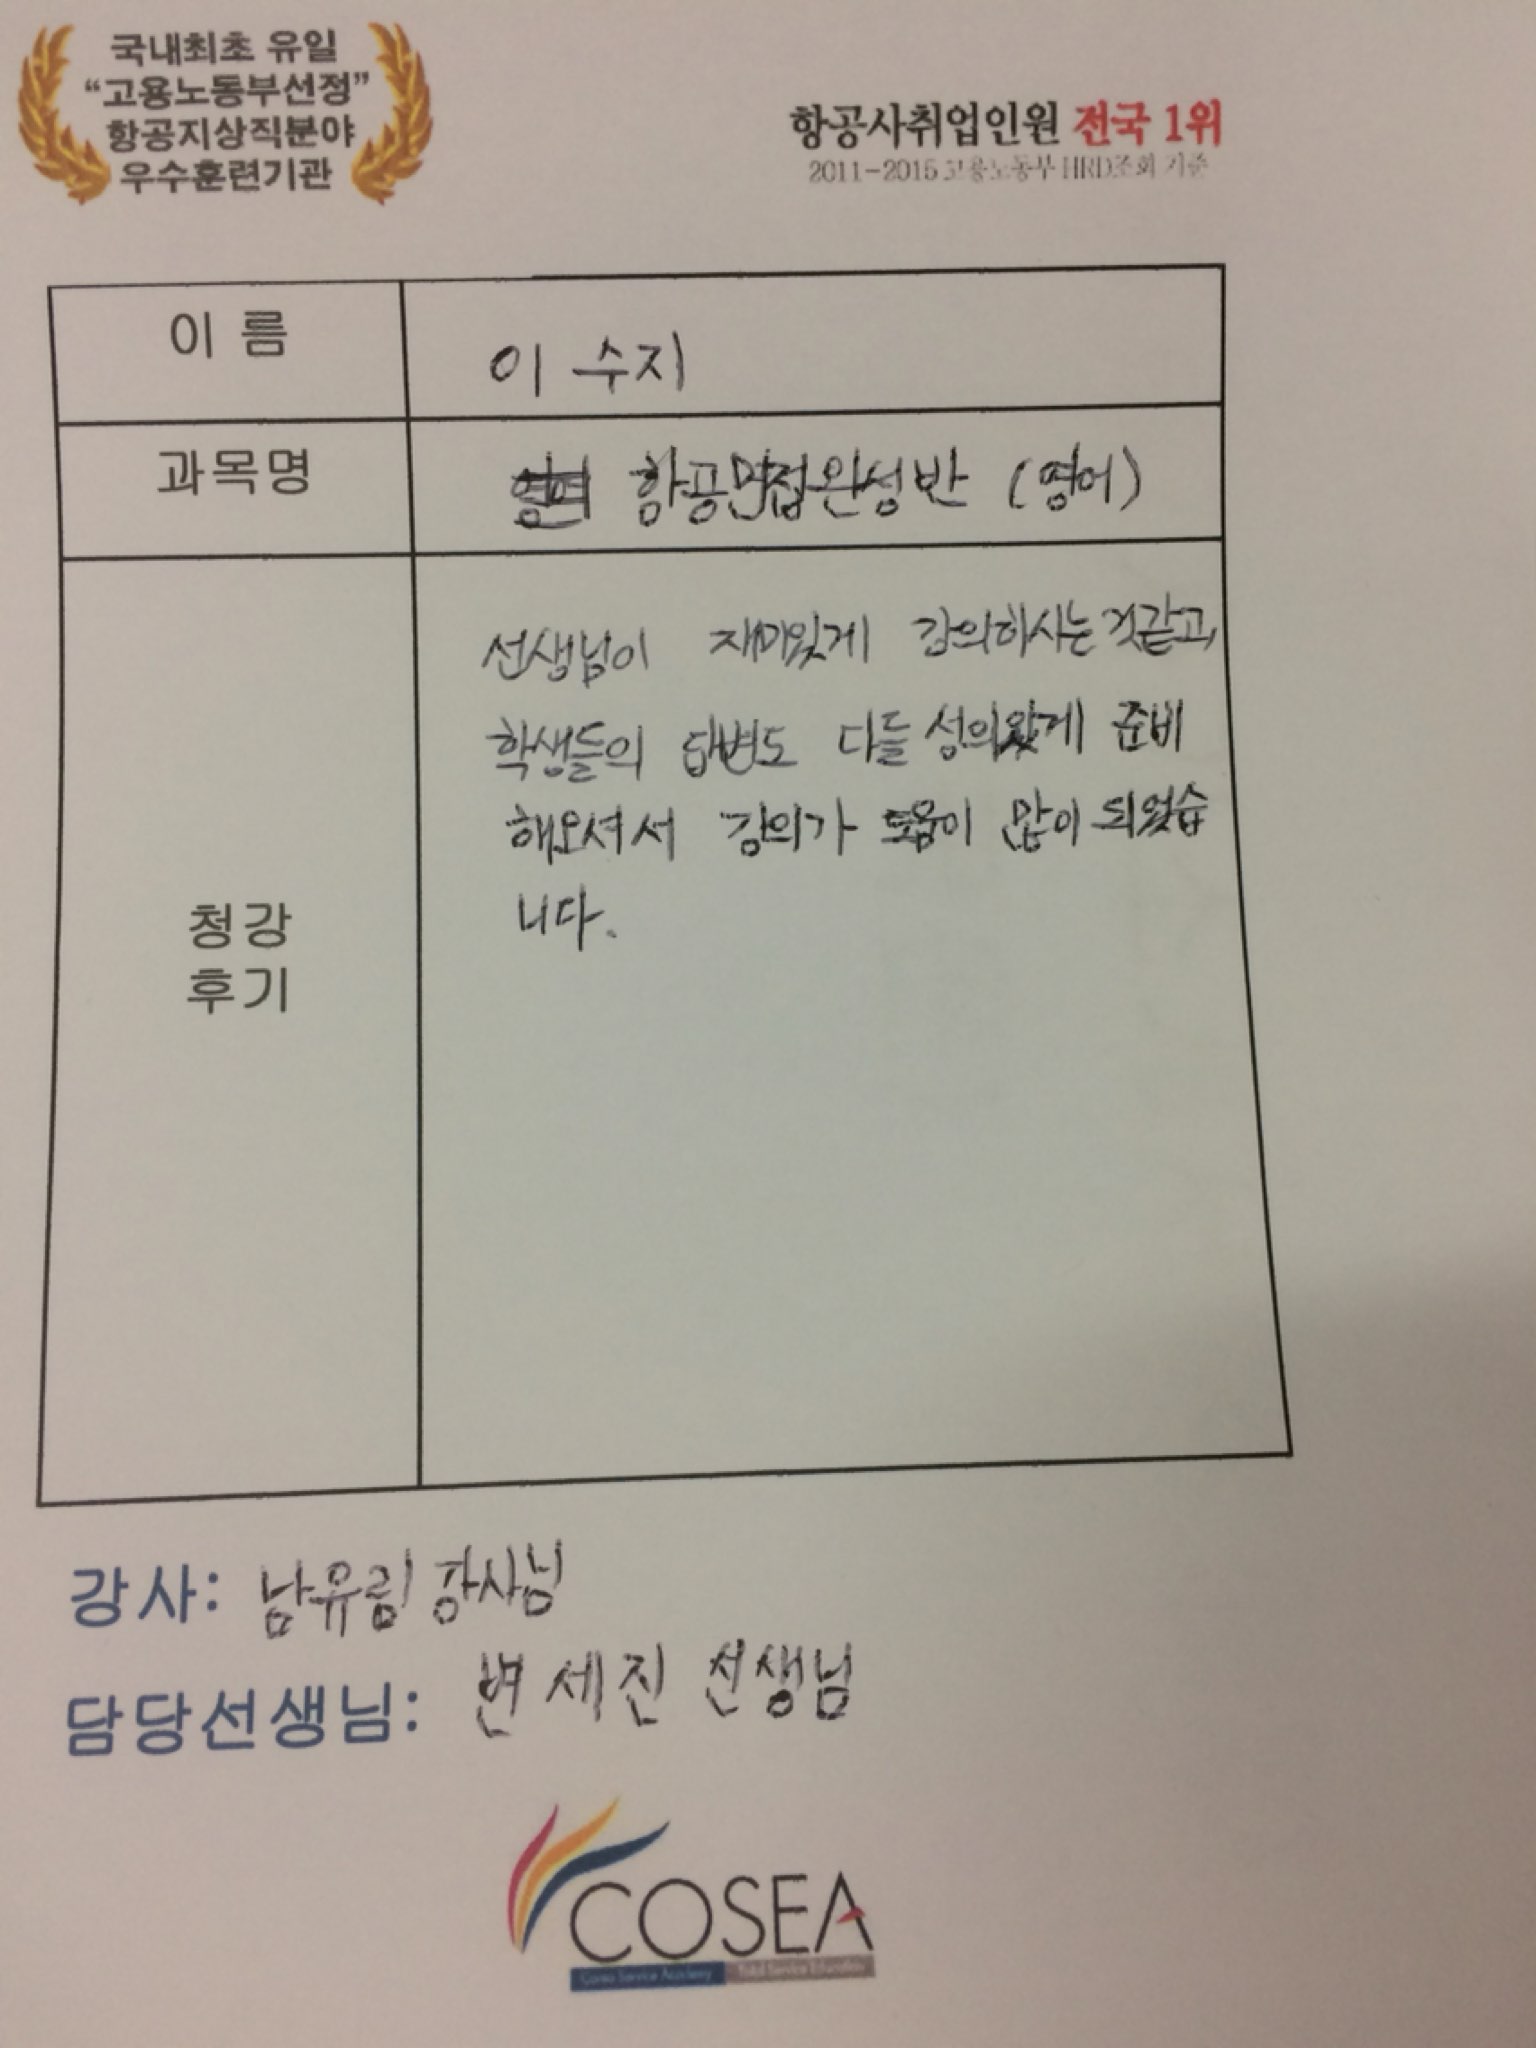 국내최초 유일
“고용노동부선정”
항공지상직분야
우수훈련기관
항공사취업인원 전국 1위
2011-2015 고용노동부 HRD조회 기준
이 름
이 수지
과목명
항공면접완성반 (영어)
청강
후기
선생님이 재미있게 강의하시는것같고,
학생들의 답변도 다들 성의있게 준비
해오셔서 강의가 도움이 많이 되었습
니다.
강사: 남유림 강사님
담당선생님: 변세진 선생님
COSEA
Corea Service Academy Total Service Education